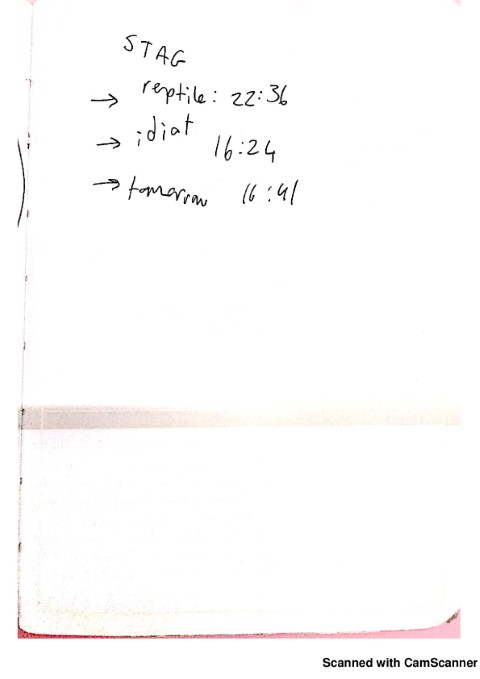 STAG
→ reptile: 22:36
→ idiot 16:24
→ tomorrow 16:41
Scanned with CamScanner